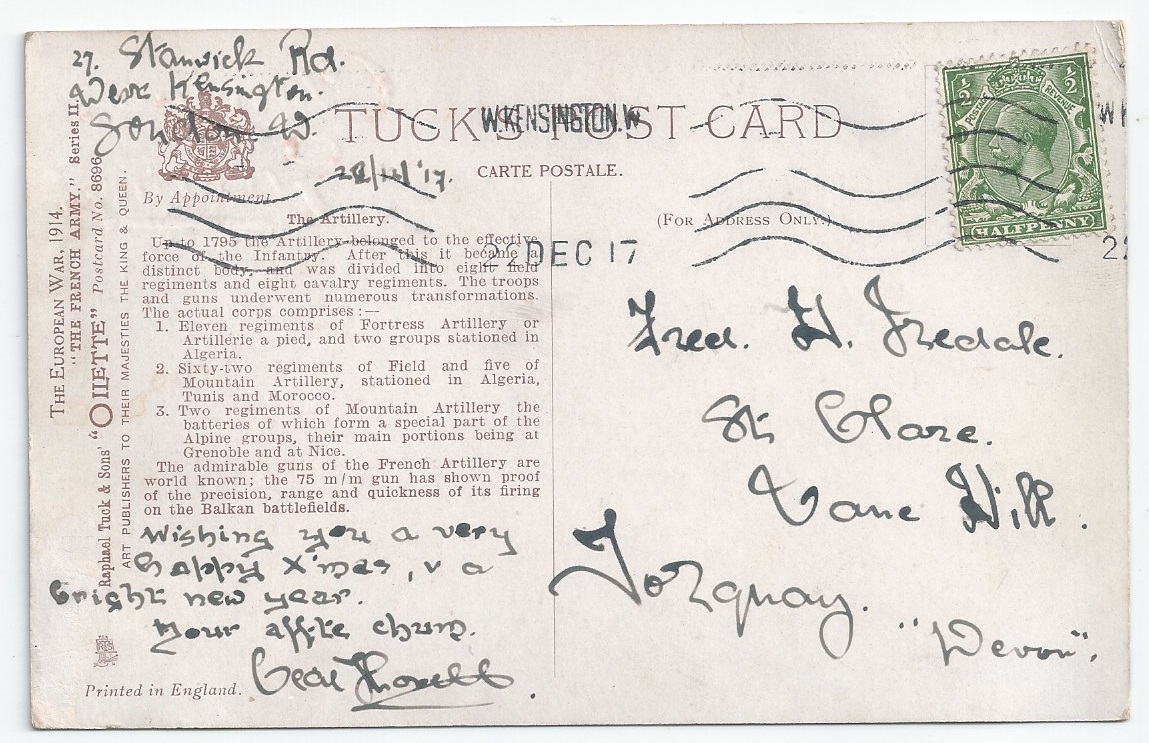 29. Stanwick Rd.
West Kensington.
London W.
TUCK'S POST CARD
W.KENSINGTON.W
CARTE POSTALE.
By Appointment.
(FOR ADDRESS ONLY.)
22 DEC 17
½ ½
POSTAGE REVENUE
HALFPENNY
THE EUROPEAN WAR, 1914.
"THE FRENCH ARMY." Series II.
Raphael Tuck & Sons' "OILETTE" Postcard No. 8696
ART PUBLISHERS TO THEIR MAJESTIES THE KING & QUEEN.
The Artillery.
Up to 1795 the Artillery belonged to the effective
force of the Infantry. After this it became a
distinct body, and was divided into eight field
regiments and eight cavalry regiments. The troops
and guns underwent numerous transformations.
The actual corps comprises :—
1. Eleven regiments of Fortress Artillery or
Artillerie a pied, and two groups stationed in
Algeria.
2. Sixty-two regiments of Field and five of
Mountain Artillery, stationed in Algeria,
Tunis and Morocco.
3. Two regiments of Mountain Artillery the
batteries of which form a special part of the
Alpine groups, their main portions being at
Grenoble and at Nice.
The admirable guns of the French Artillery are
world known; the 75 m/m gun has shown proof
of the precision, range and quickness of its firing
on the Balkan battlefields.
Wishing you a very
happy X'mas, v a
bright new year.
Your affte chum.
Printed in England.
Fred. H. Iredale.
St. Clare.
Vane Hill.
Torquay.
"Devon".